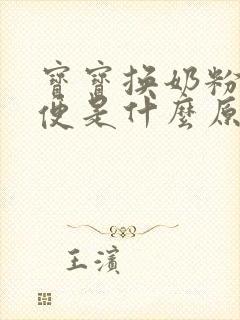 寶寶換奶粉
便是什麼原
王濱